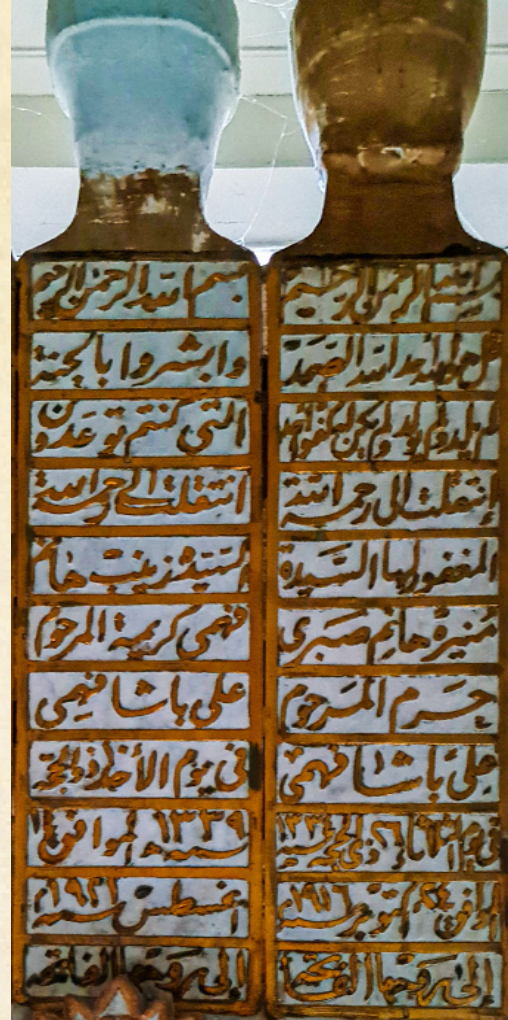 بسم الله الرحمن الرحيم
قل هو الله أحد الله الصمد
لم يلد ولم يولد ولم يكن له كفوا احد
إنتقلت الى رحمة الله
المغفور لها السيدة
منيرة هانم صبرى
حرم المرحوم
على باشا فهمى
فى يوم الثلاثاء ٢٦ ذى الحجه سنة ١٣٣٤
الموافق ٢٤ اكتوبر سنه ١٩١٦
إلى روحها الفاتحة
بسم الله الرحمن الرحيم
وابشروا بالجنة
التى كنتم توعدون
انتقلت الى رحمة الله
السيدة زينب هانم
فهمى كريمة المرحوم
على باشا فهمى
فى يوم الأحد ذو الحجة
سنه ١٣٣٩ الموافق ١٤
اغسطس سنه ١٩٢١
إلى روحها الفاتحة